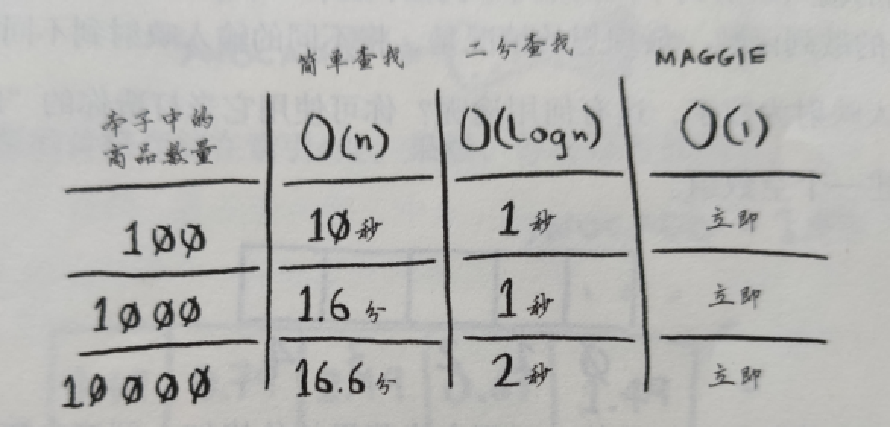 简单查找 二分查找 MAGGIE
本子中的
商品数量 O(n) O(logn) O(1)
100 10秒 1秒 立即
1000 1.6分 1秒 立即
10000 16.6分 2秒 立即